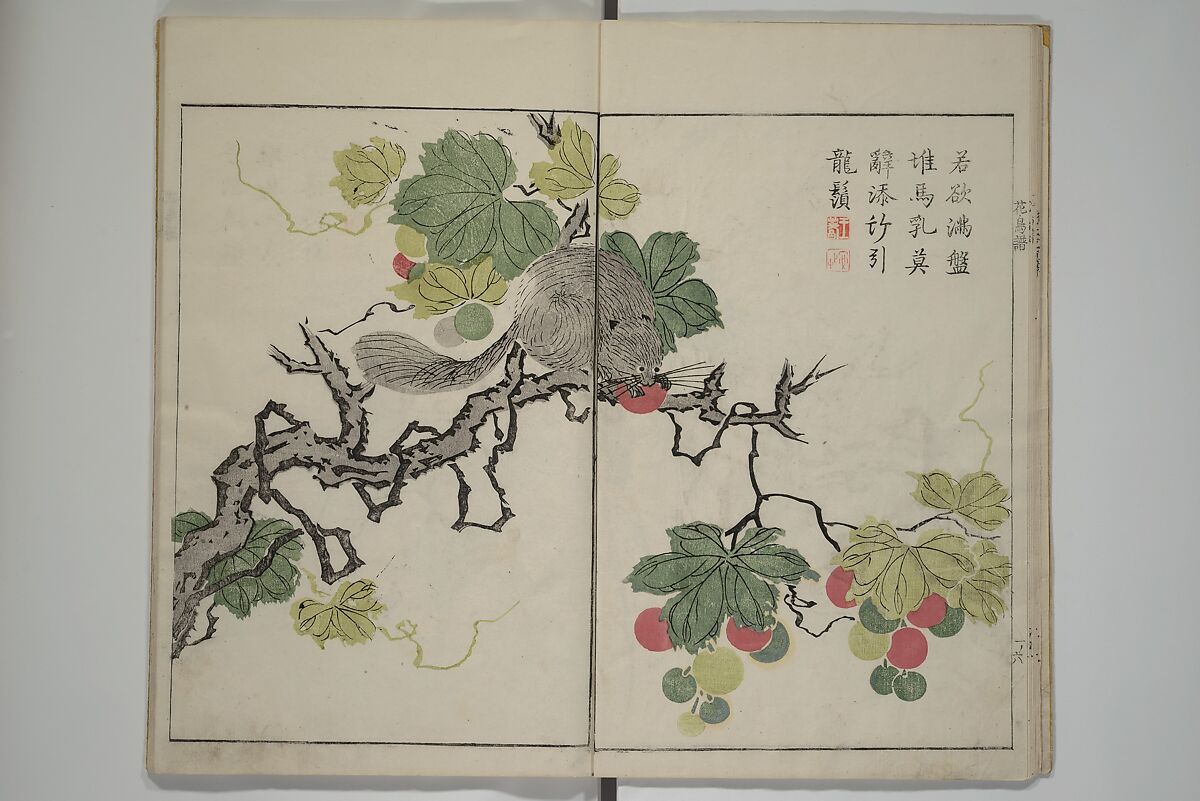 若欲滿盤
堆馬乳莫
辭添竹引
龍鬚
花鳥譜